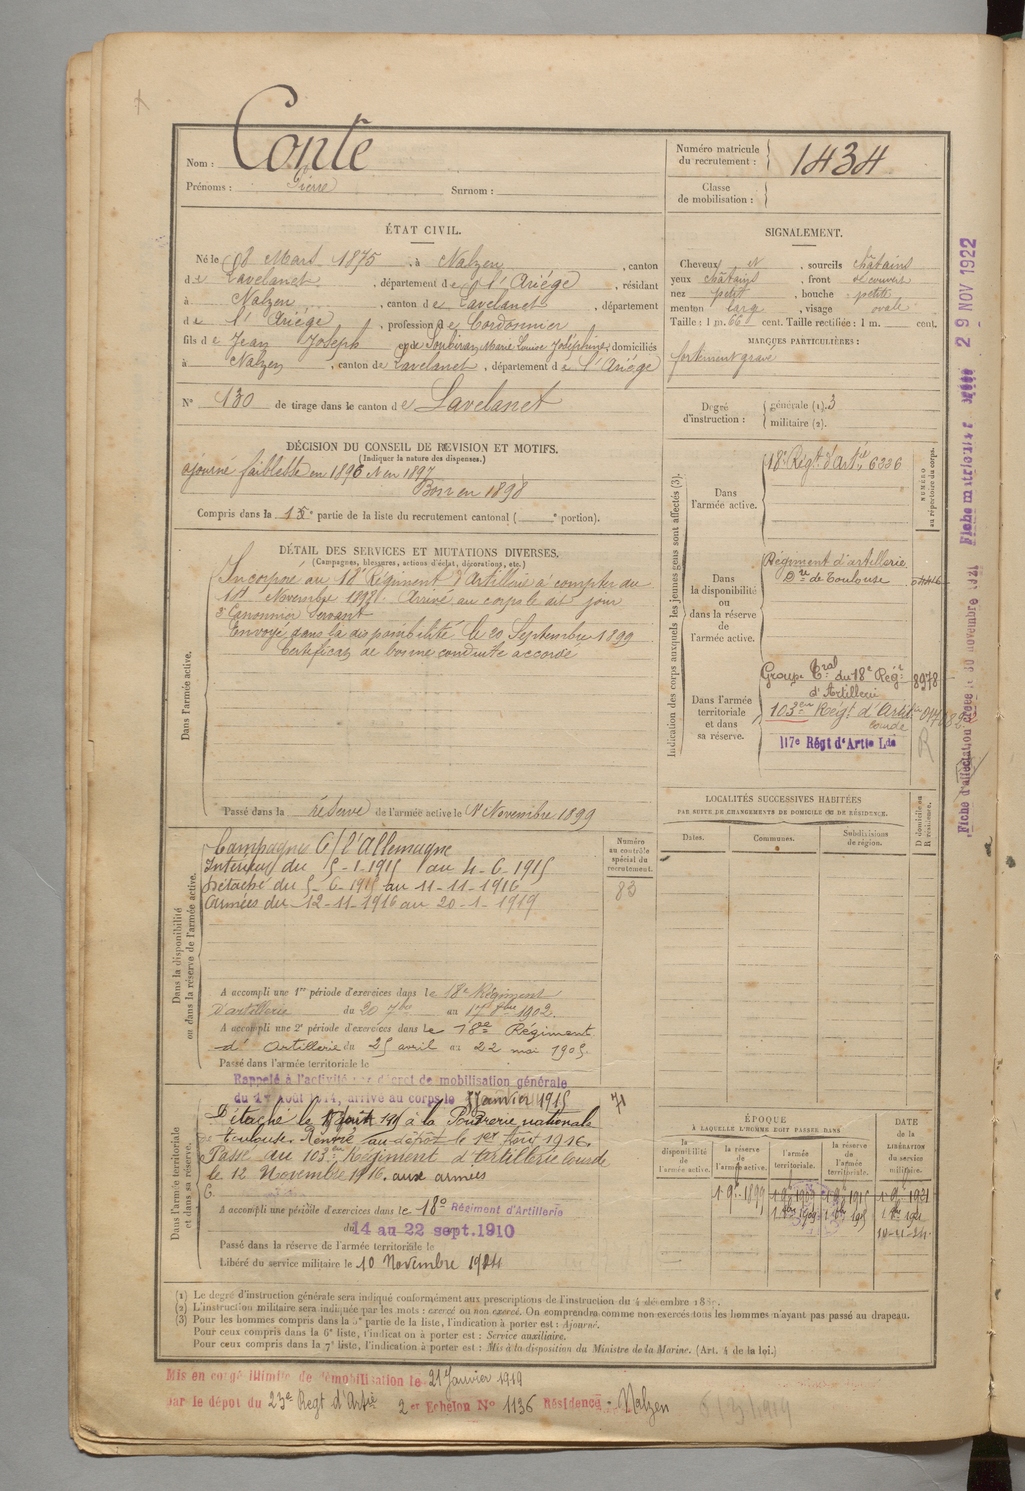 Nom : Conte
Prénoms : Pierre Surnom :
Numéro matricule du recrutement : 1434
Classe de mobilisation :
ÉTAT CIVIL.
Né le 8 Mars 1875, à Nalzen, canton
de Lavelanet, département de l'Ariége, résidant
à Nalzen, canton de Lavelanet, département
de l'Ariége, profession de Cordonnier
fils de Jean Joseph et de Soubiran Marie Louise Joséphine, domiciliés
à Nalzen, canton de Lavelanet, département de l'Ariége
N° 130 de tirage dans le canton de Lavelanet
SIGNALEMENT.
Cheveux et, sourcils châtains
yeux châtains, front découvert
nez petit, bouche petite
menton large, visage ovale
Taille : 1 m. 66 cent. Taille rectifiée : 1 m. cent.
MARQUES PARTICULIÈRES :
fortement gravé
Degré d'instruction : générale (1). 3
militaire (2).
DÉCISION DU CONSEIL DE REVISION ET MOTIFS.
(Indiquer la nature des dispenses.)
ajourné faiblesse en 1896 et en 1897
Bon en 1898
Compris dans la partie de la liste du recrutement cantonal ( portion).
DÉTAIL DES SERVICES ET MUTATIONS DIVERSES.
(Campagnes, blessures, actions d'éclat, décorations, etc.)
Dans l'armée active.
Incorporé au 18e Régiment d'Artillerie à compter du
Novembre 1898. Arrivé au corps le dit jour
Canonnier Servant
Envoyé dans la disponibilité le 20 Septembre 1899
Certificat de bonne conduite accordé
Passé dans la réserve de l'armée active le 1 Novembre 1899
Indication des corps auxquels les jeunes gens sont affectés (3).
NUMÉRO au répertoire du corps.
Dans l'armée active.
18e Régt d'Artie 6336
Dans la disponibilité ou dans la réserve de l'armée active.
Régiment d'artillerie
de Toulouse
Dans l'armée territoriale et dans sa réserve.
Groupe Tral du 18e Régt 8978
d'Artillerie
103eme Régt d'Artie
lourde
117e Régt d'Artie Lde
R
Fiche d'affectation créée le 30 novembre 1921
Fiche matricule 29 NOV 1922
LOCALITÉS SUCCESSIVES HABITÉES
PAR SUITE DE CHANGEMENTS DE DOMICILE OU DE RÉSIDENCE.
Dates. Communes. Subdivisions de région. D domicile ou R résidence.
Dans la disponibilité ou dans la réserve de l'armée active.
Numéro au contrôle spécial du recrutement.
83
Campagne C/ l'Allemagne
Intérieur du 5-1-1915 au 4-6-1915
Détaché du 5-6-1915 au 11-11-1916
Armées du 12-11-1916 au 20-1-1919
A accompli une 1re période d'exercices dans le 18e Régiment
d'artillerie du 20 7bre au 17 8bre 1902.
A accompli une 2e période d'exercices dans le 18e Régiment
d'Artillerie du 25 avril au 22 mai 1905.
Passé dans l'armée territoriale le
Dans l'armée territoriale et dans sa réserve.
Rappelé à l'activité par décret de mobilisation générale
du 1er Août 1914, arrivé au corps le 5 Janvier 1915
71
Détaché le à la Poudrerie nationale
Toulouse. Rentré au dépôt le 1er 1916.
Passé au 103eme Régiment d'artillerie lourde
le 12 Novembre 1916. aux armées
A accompli une période d'exercices dans le 18e Régiment d'Artillerie
du 14 au 22 sept. 1910
Passé dans la réserve de l'armée territoriale le
Libéré du service militaire le 10 Novembre 1924
ÉPOQUE
À LAQUELLE L'HOMME DOIT PASSER DANS
la disponibilité de l'armée active. la réserve de l'armée active. l'armée territoriale. la réserve de l'armée territoriale.
DATE DE LA LIBÉRATION du service militaire.
(1) Le degré d'instruction générale sera indiqué conformément aux prescriptions de l'instruction du 4 décembre
(2) L'instruction militaire sera indiquée par les mots : exercé ou non exercé. On comprendra comme non exercés tous les hommes n'ayant pas passé au drapeau.
(3) Pour les hommes compris dans la 5e partie de la liste, l'indication à porter est : Ajourné.
Pour ceux compris dans la 6e liste, l'indication à porter est : Service auxiliaire.
Pour ceux compris dans la 7e liste, l'indication à porter est : Mis à la disposition du Ministre de la Marine. (Art. 4 de la loi.)
Mis en congé illimité de démobilisation le 21 Janvier 1919
par le dépot du 23e Regt d'Artie 2e Echelon N° 1136 Résidence : Nalzen